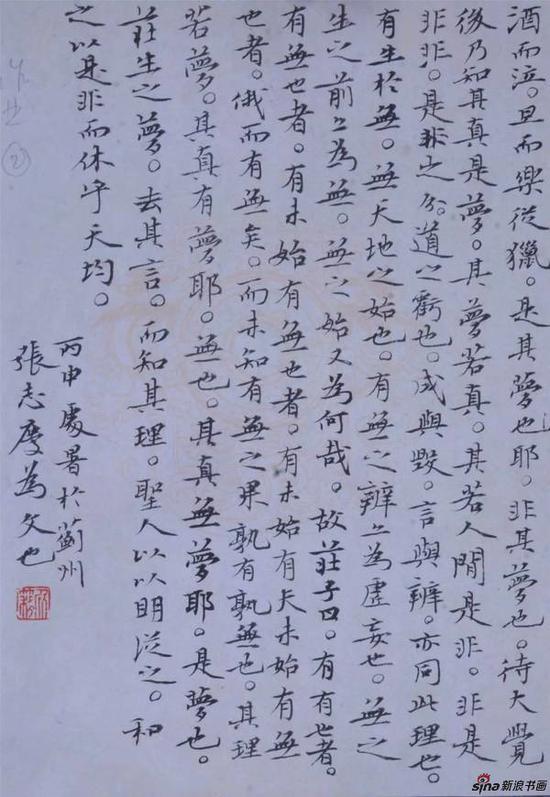 酒而泣。旦而樂從獵。是其夢也耶。非其夢也。待大覺
後乃知其真是夢。其夢若真。其若人間是非。非是
非非。是非之分。道之虧也。成與毀。言與辯。亦同此理也。
有生於無。無天地之始也。有無之辯之為虛妄也。無之
生之前之為無。無之始又為何哉。故莊子曰。有有也者。
有無也者。有未始有無也者。有未始有夫未始有無
也者。俄而有無矣。而未知有無之果孰有孰無也。其理
若夢。其真有夢耶。無也。其真無夢耶。是夢也。
莊生之夢。去其言。而知其理。聖人以以明從之。和
之以是非而休乎天均。
丙申處暑於薊州
張志慶為文也
作业
②
sina新浪书画